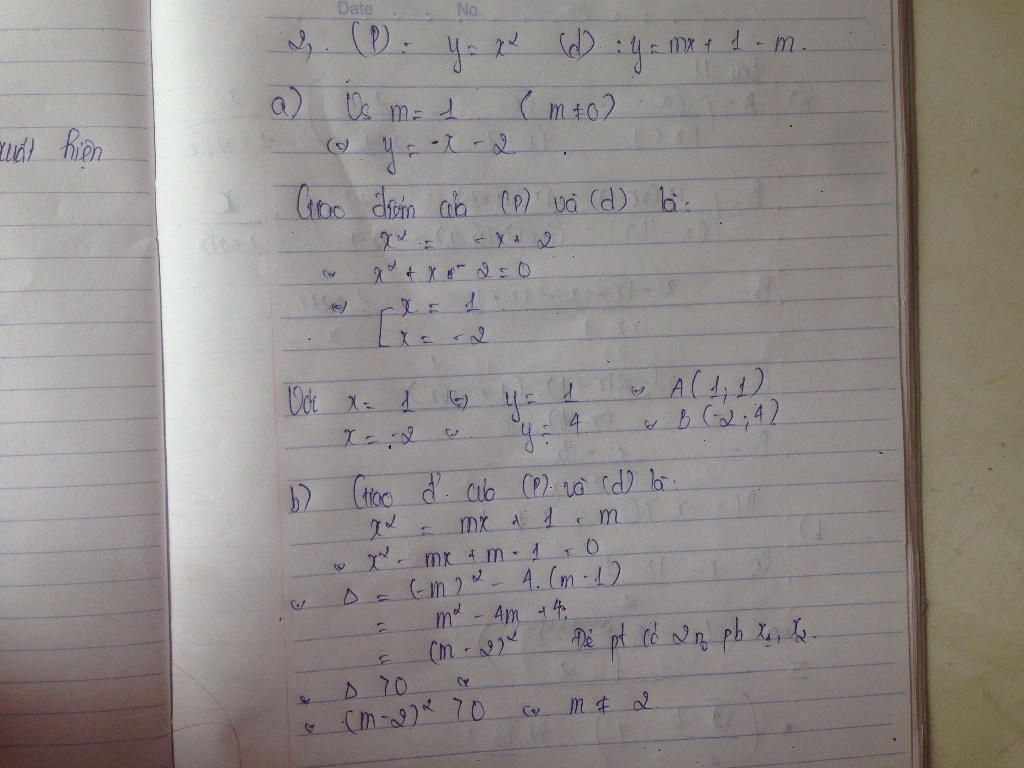 Date No.
2, (P) = y = x² (d) : y = mx + 1 - m.
xuất hiện
a) Vs m = 1 (m ≠ 0)
⇔ y = -x - 2
Giao điểm của (P) và (d) là:
x² = -x + 2
⇔ x² + x - 2 = 0
⇔ [ x = 1
x = -2
Với x = 1 ⇔ y = 1 ⇔ A(1; 1)
x = -2 ⇔ y = 4 ⇔ B(-2; 4)
b) Giao đ' của (P) và (d) là:
x² = mx + 1 - m
⇔ x² - mx + m - 1 = 0
⇔ Δ = (-m)² - 4.(m - 1)
= m² - 4m + 4.
= (m - 2)² Để pt có 2 n₀ pb x₁, x₂.
⇔ Δ > 0 ⇔
⇔ (m - 2)² > 0 ⇔ m ≠ 2